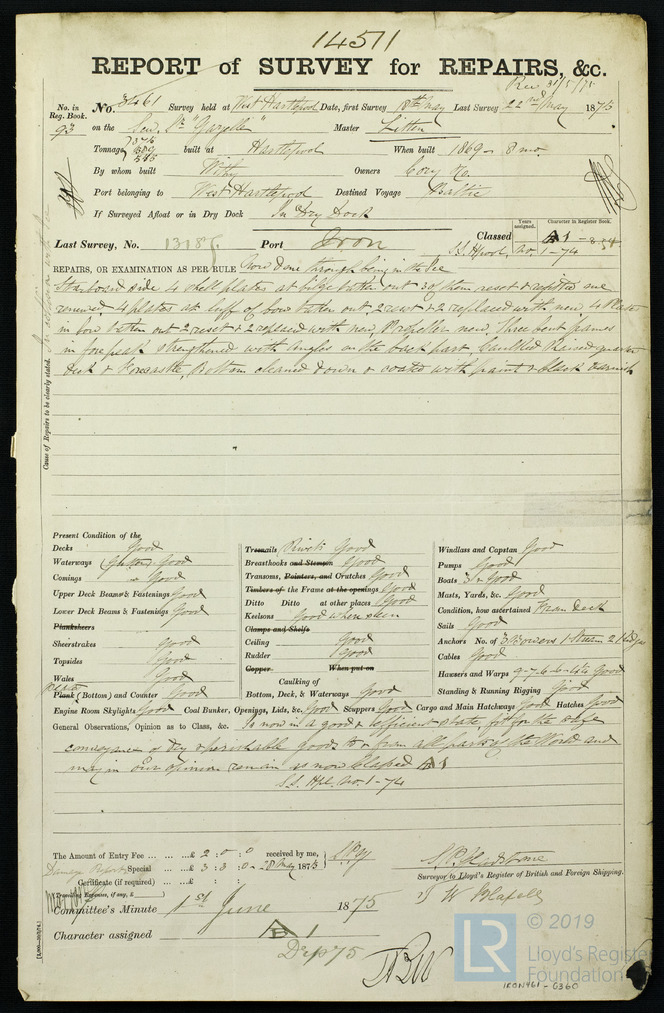 14511
REPORT of SURVEY for REPAIRS, &c.
Rec 31/5/75
No. in Reg. Book. No. 8461 Survey held at West Hartlepool Date, first Survey 18th May Last Survey 22nd May 1875
93 on the Scw. Sr. "Gazelle" Master Litten
Tonnage built at Hartlepool When built 1869 - 8 mo.
By whom built Withy Owners Cory &c.
Port belonging to West Hartlepool Destined Voyage Baltic
If Surveyed Afloat or in Dry Dock In Dry Dock
Years assigned. Character in Register Book.
Last Survey, No. Port Iron Classed A1
S.S. Hpool, No. 1-74
REPAIRS, OR EXAMINATION AS PER RULE Now done through being in the Ice
Starboard side 4 shell plates at bilge taken out 3 of them reset & refitted one
renewed, 4 plates at luff of bow taken out, 2 reset & 2 replaced with new, 4 Plates
in bow taken out 2 reset & 2 replaced with new, Propeller new, Three bent frames
in forepeak strengthened with angles on the back part, Caulked Raised quarter
deck & Forecastle, Bottom cleaned down & coated with paint & black varnish
Cause of Repairs to be clearly stated.
Present Condition of the
Decks Good
Waterways Good
Comings " Good
Upper Deck Beams & Fastenings Good
Lower Deck Beams & Fastenings Good
Planksheers
Sheerstrakes Good
Topsides Good
Wales Good
Plates
Plank (Bottom) and Counter Good
Treenails Rivets Good
Breasthooks and Stemson Good
Transoms, Pointers, and Crutches Good
Timbers of the Frame at the openings Good
Ditto Ditto at other places Good
Keelsons Good when seen
Clamps and Shelfs
Ceiling Good
Rudder Good
Copper When put on
Caulking of
Bottom, Deck, & Waterways Good
Windlass and Capstan Good
Pumps Good
Boats 3 & Good
Masts, Yards, &c. Good
Condition, how ascertained From Deck
Sails Good
Anchors No. of 3 Bowers 1 Stream 2 Kedges
Cables Good
Hawsers and Warps 9-7-6-6-4½ Good
Standing & Running Rigging Good
Engine Room Skylights Good Coal Bunker, Openings, Lids, &c. Good Scuppers Good Cargo and Main Hatchways Good Hatches Good
General Observations, Opinion as to Class, &c. Is now in a good & efficient state, fit for the safe
conveyance of dry & perishable goods to & from all parts of the World and
may in our opinion remain as now classed A1
S.S. Hpl. No. 1-74
The Amount of Entry Fee ... £ 2 : 0 : 0 received by me,
Damage Report Special ... £ 3 : 3 : 0 - 28 May 1875
Certificate (if required) ... £ : :
(Travelling Expenses, if any, £ )
Surveyor to Lloyd's Register of British and Foreign Shipping.
Committee's Minute 1st June 1875
Character assigned A 1
TBW
© 2019
LR Lloyd's Register
Foundation
IRON461-0360